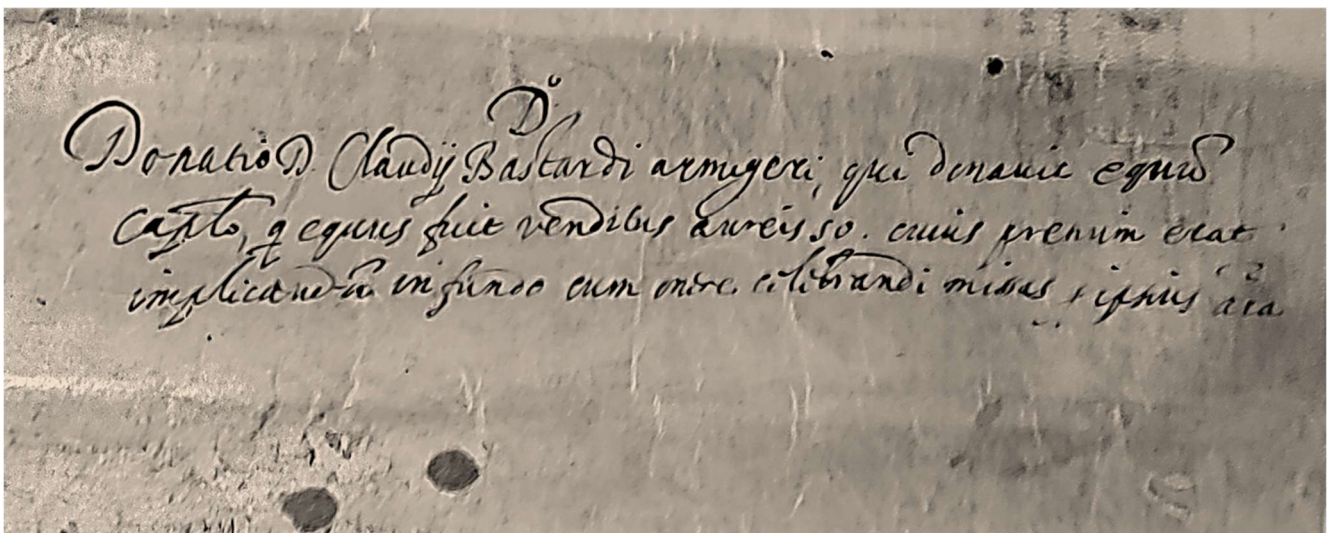 D°
Donatio D. Claudij Bastardi armigeri, qui donavit equũ
Caplo, q equus fuit venditus aureis 50. cuius precium erat
implicandũ in fundo cum onere celebrandi missas ipsius aĩa